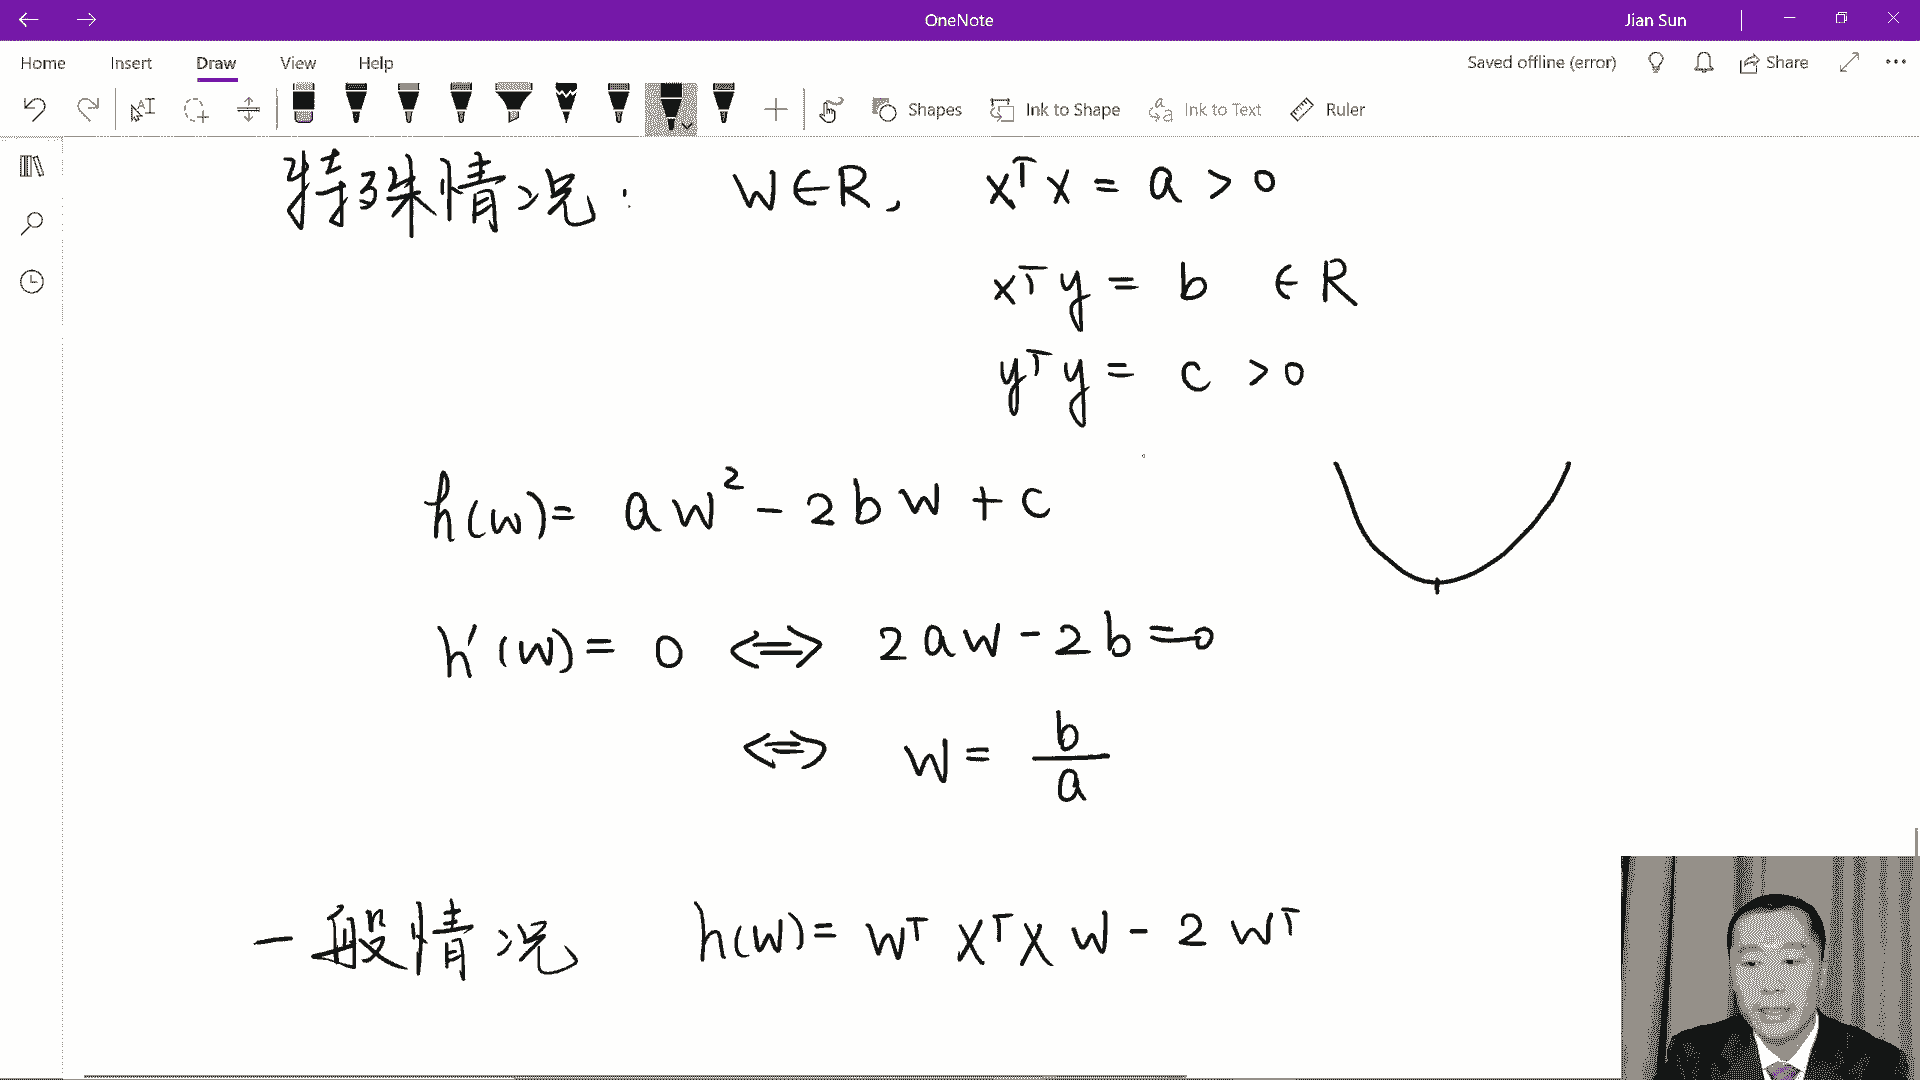 OneNote
Jian Sun
Home Insert Draw View Help
Saved offline (error) Share
Shapes Ink to Shape Ink to Text Ruler
特殊情况: W∈R, xᵀx = a > 0
xᵀy = b ∈ R
yᵀy = c > 0
h(w) = aw² - 2bw + c
h'(w) = 0 <=> 2aw - 2b = 0
<=> w = b/a
一般情况 h(w) = wᵀXᵀXw - 2wᵀ